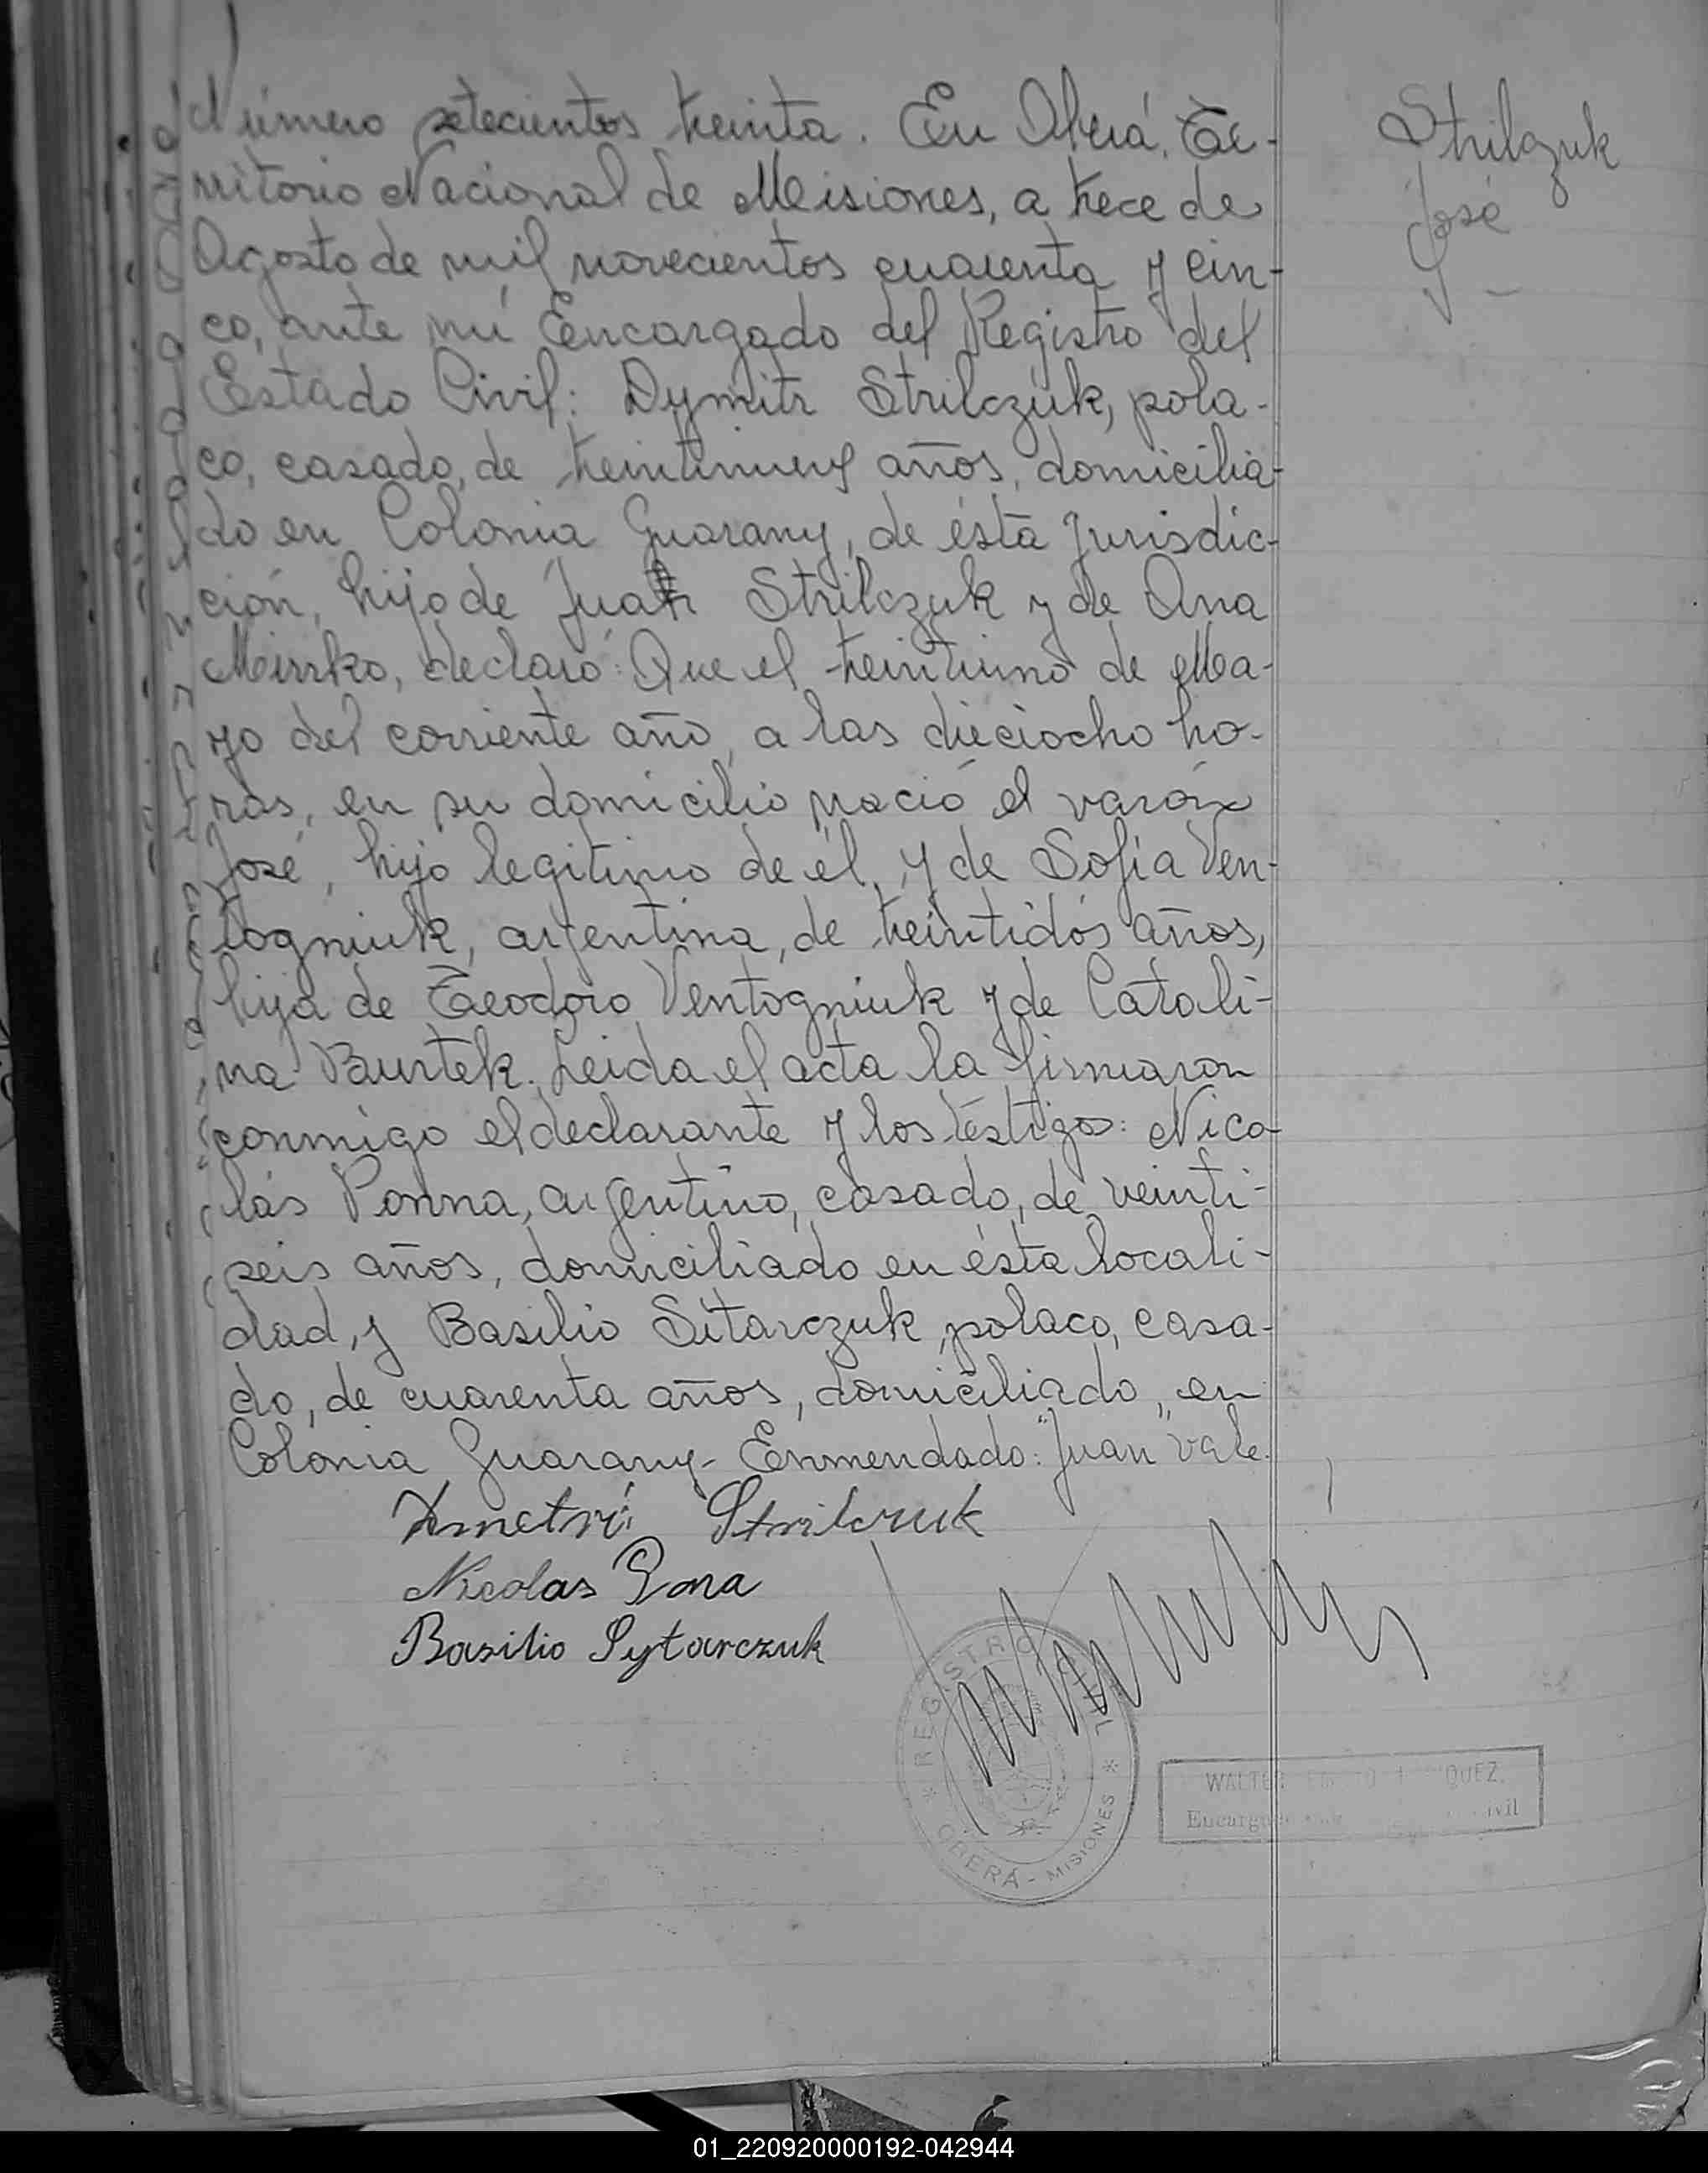 Número setecientos treinta. En Oberá, Te-
rritorio Nacional de Misiones, a trece de
Agosto de mil novecientos cuarenta y cin-
co, ante mí Encargado del Registro del
Estado Civil: Dymitr Strilczuk, pola-
co, casado, de años, domicilia-
do en Colonia Guarany, de ésta Jurisdic-
ción, hijo de Juan Strilczuk y de Ana
Mirrko, declaró: Que el treintiuno de Ma-
yo del corriente año, a las dieciocho ho-
ras, en su domicilio nació el varón
José, hijo legitimo de él, y de Sofía Ven-
togniuk, argentina, de treintidós años,
hija de Teodoro Ventogniuk y de Catali-
na Burtek. Leida el acta la firmaron
conmigo el declarante y los testigos: Nico-
lás Ponna, argentino, casado, de veinti-
seis años, domiciliado en ésta locali-
dad, y Basilio Sitarczuk, polaco, casa-
do, de cuarenta años, domiciliado, en
Colonia Guarany- Enmendado: "Juan" vale.
Strilczuk
José
Dmetri Strilczuk
Nicolas Pona
Basilio Sytarczuk
* REGISTRO CIVIL *
OBERÁ - MISIONES
WALTER QUEZ.
Civil
01_220920000192-042944